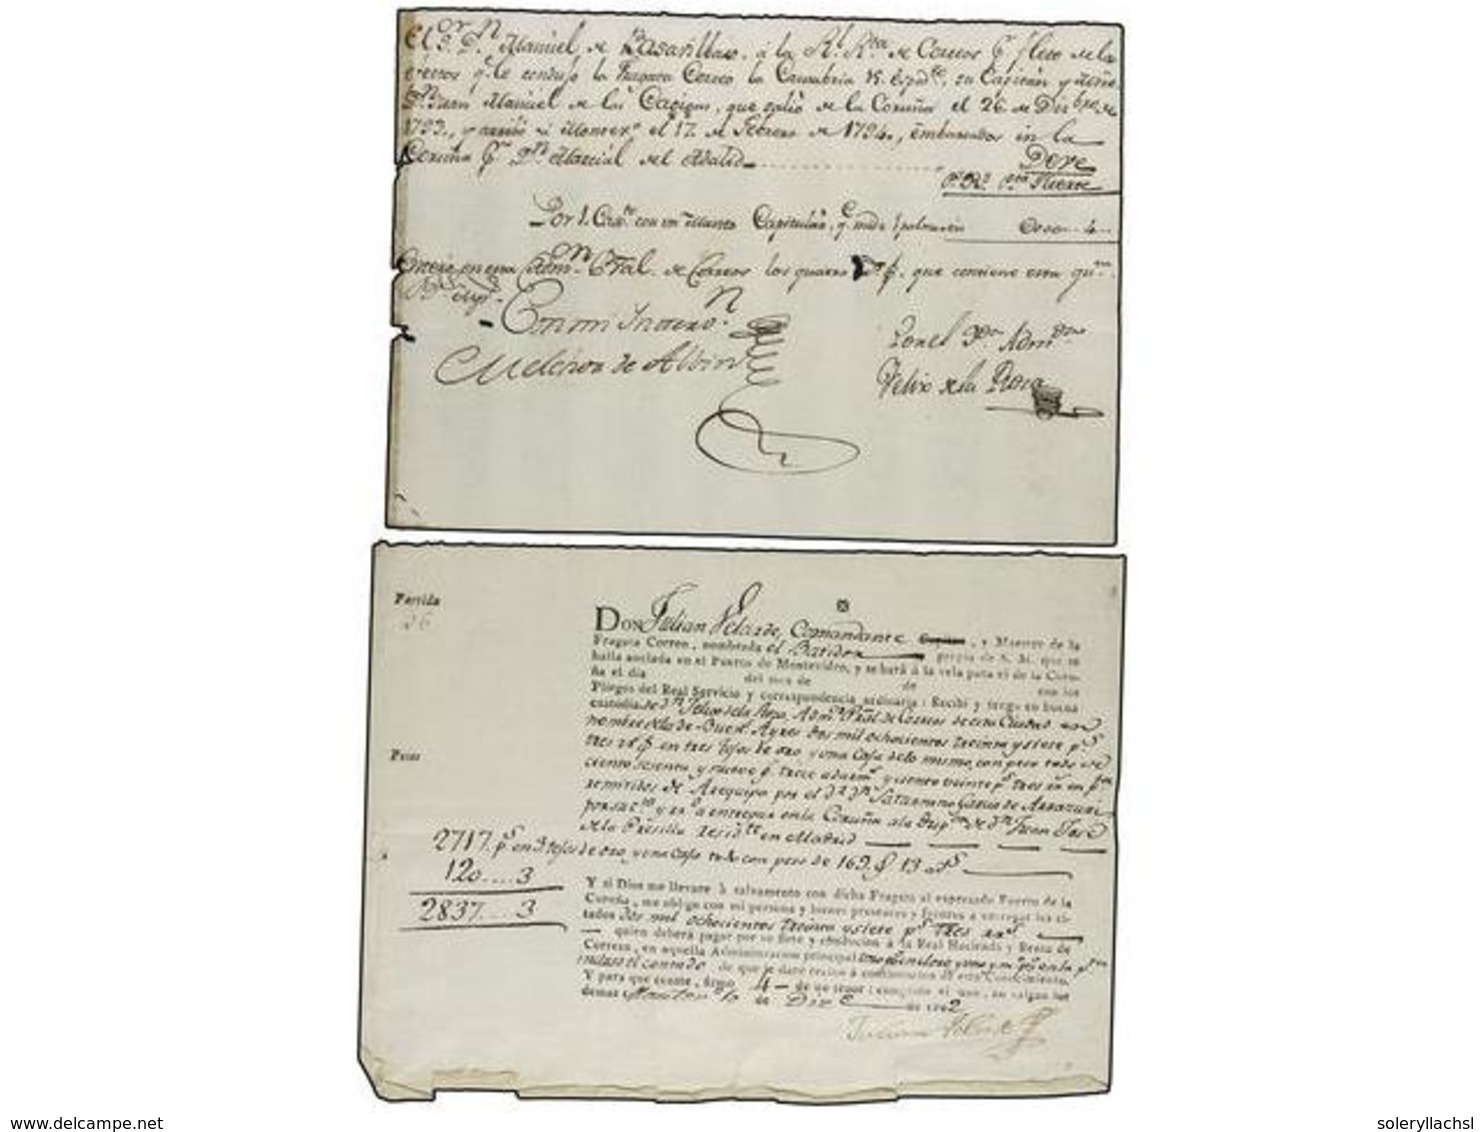 El S.r D.n Manuel de Basavilbaso, á la R.l R.ta de Correos p.r flete de la
q.e le condujo la Fragata Correo la Cantabria su Capitan y Mtre
D.n Juan Manuel de las Cagigas, que salió de la Coruña el 26 de Dizbre de
1793., y arribó á Montev.o el 17. de Febrero de 1794., embarcados en la
Coruña p.r D.n Marcial del Adalid
Deve
Por 1. Cax.n con un Manto Capitular, q.e mide 1 palmo 4
en esta Adm.n Gral. de Correos los quatro que contiene esta
Melchor de Albin
Por el Adm.or
Felix de la Rosa
Partida
26
DON Julian Velarde, Comandante Capitan, y Maestre de la
Fragata Correo, nombrada el Batidor propia de S. M. que se
halla anclada en el Puerto de Montevideo, y se hará á la vela para el de la Coru-
ña el dia del mes de de con los
Pliegos del Real Servicio y correspondencia ordinaria: Recibí y tengo en buena
custodia de D.n Felix de la Rosa, Adm.r Pral de Correos de esta Ciudad en
nombre del de Buen.s Ayres dos mil ochocientos treinta y siete p.s
tres r.s en tres tejos de oro y una Caja de lo mismo, con peso todo de
ciento sesenta y nueve trece adarm.s y ciento veinte p.s tres
remitidos de Arequipa por el D.n Saturnino Garcia de Arrazuri
á entregar en la Coruña a la disp.on de D.n Juan José
de la Presilla resid.te en Madrid
Pesos
2717. p.s en 3 tejos de oro, y una Caja todo con peso de 169. 13 ad.s
120....3
2837....3
Y si Dios me llevare á salvamento con dicha Fragata al expresado Puerto de la
Coruña, me obligo con mi persona y bienes presentes y futuros á entregar los ci-
tados dos mil ochocientos treinta y siete p.s tres r.s
quien deberá pagar por su flete y conducion á la Real Hacienda y Renta de
Correos, en aquella Administracion principal
incluso el contado de que se dará recibo á continuacion de este Conocimiento.
Y para que conste, firmo 4 de un tenor: cumplido el uno, no valgan los
demas Montev.o de Diz.e de 1802
Julian Velarde
delcampe.net
soleryllachsl